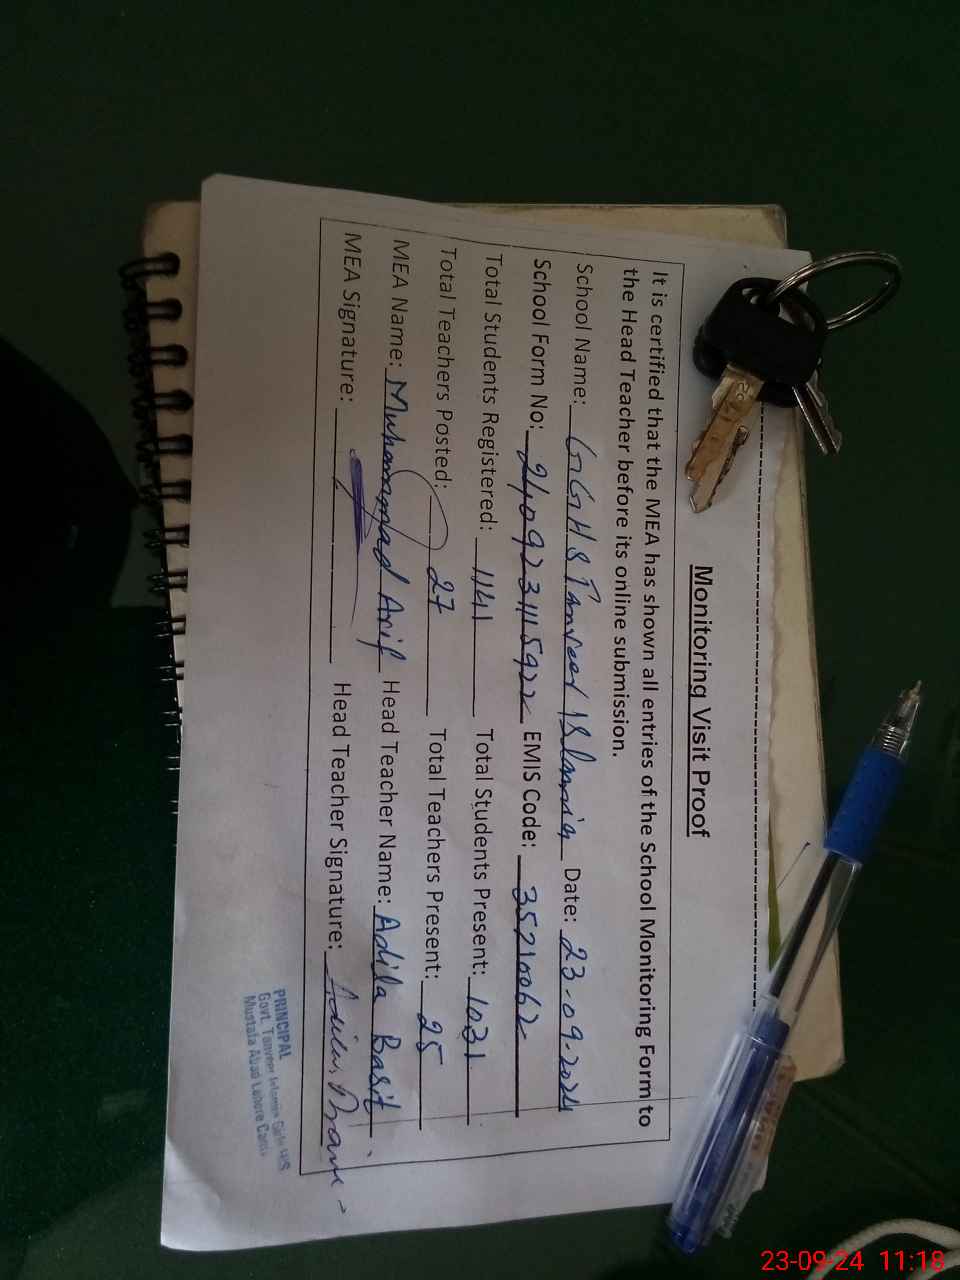 Monitoring Visit Proof
It is certified that the MEA has shown all entries of the School Monitoring Form to
the Head Teacher before its online submission.
School Name: GGHS Tanveer Islamia Date: 23-09-2024
School Form No: 240923115922 EMIS Code: 35210062
Total Students Registered: 1141 Total Students Present: 1031
Total Teachers Posted: 27 Total Teachers Present: 25
MEA Name: Muhammad Arif Head Teacher Name: Adila Basit
MEA Signature: Head Teacher Signature:
PRINCIPAL
Govt. Tanveer Islamia Girls H/S
Mustafa Abad Lahore Cantt.
23-09-24 11:18